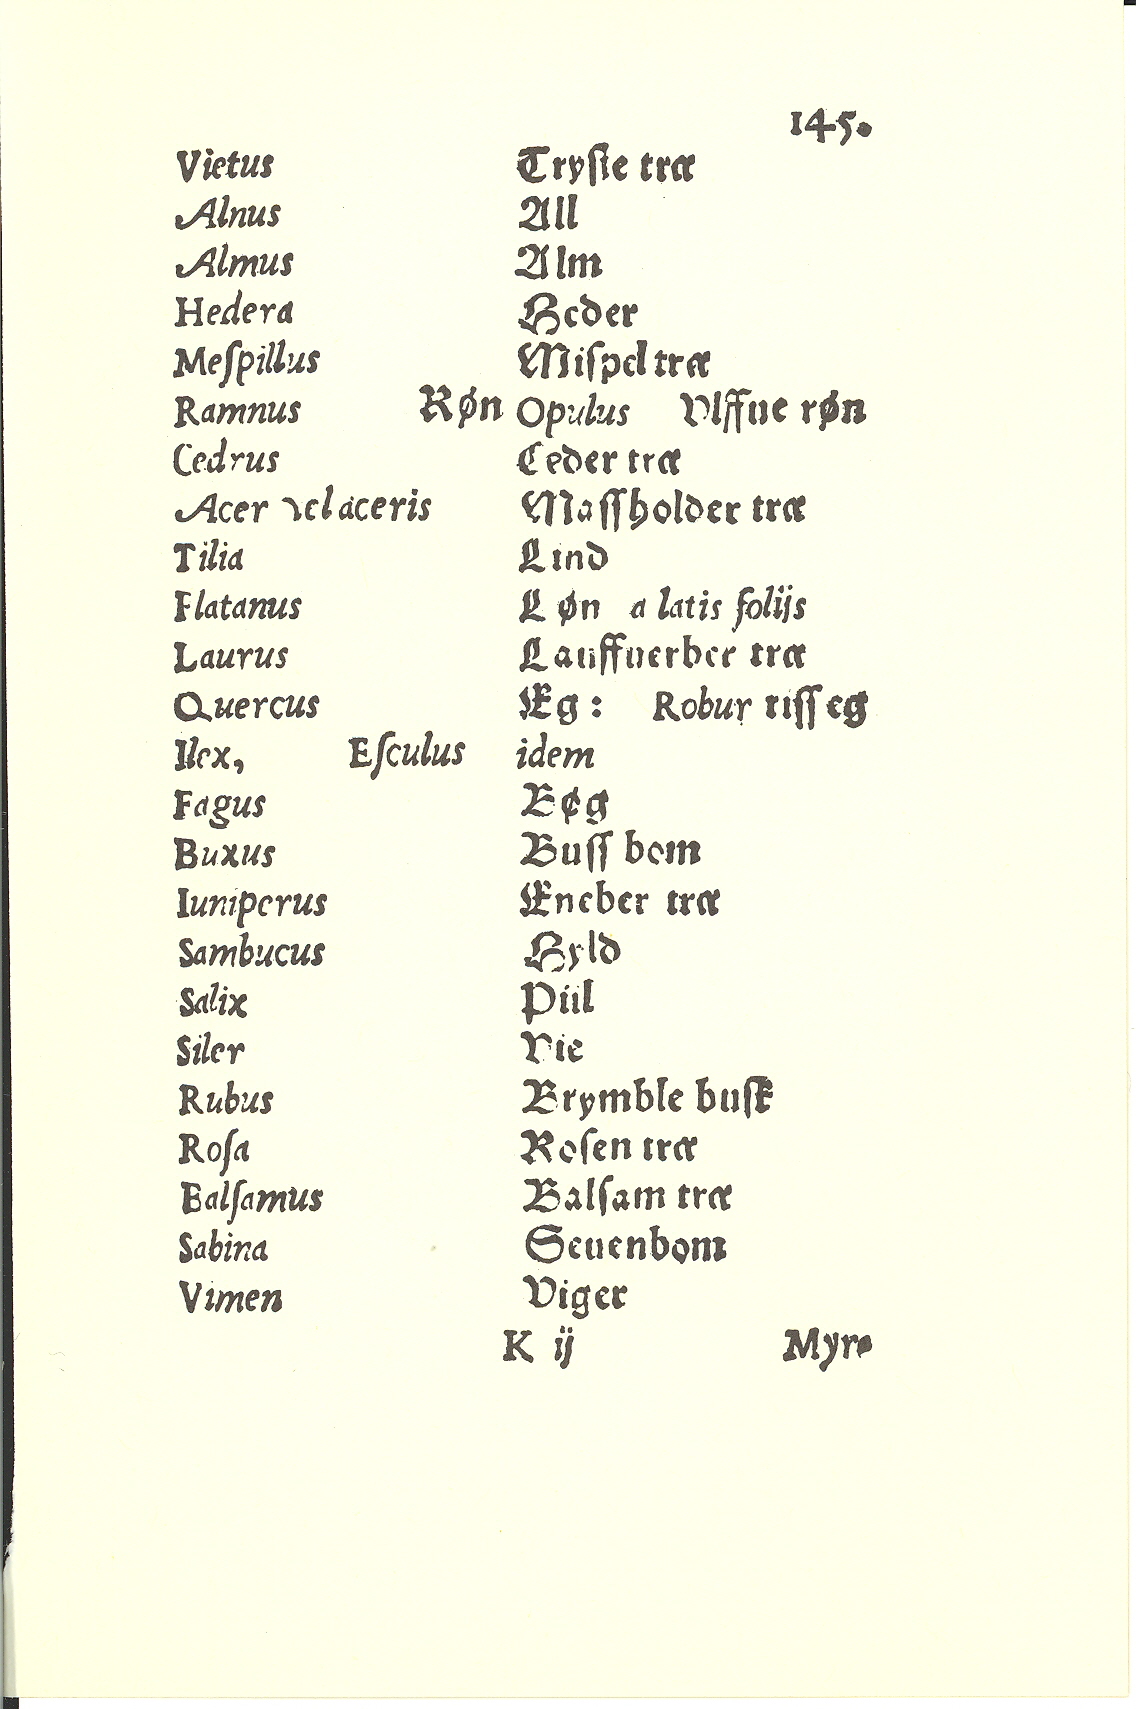 145.
Vietus Tryſte træ
Alnus All
Almus Alm
Hedera Heder
Meſpillus Miſpel træ
Ramnus Røn Opulus Vlffue røn
Cedrus Ceder træ
Acer vel aceris Maſſholder træ
Tilia Lind
Flatanus Løn a latis folijs
Laurus Lauffuerber træ
Quercus Eg: Robur riſſ eg
Ilex, Eſculus idem
Fagus Bøg
Buxus Buſſ bom
Iuniperus Eneber træ
Sambucus Hyld
Salix Piil
Siler Vie
Rubus Brymble buſk
Roſa Roſen træ
Balſamus Balſam træ
Sabina Seuenbom
Vimen Viger
K ij Myr⸗